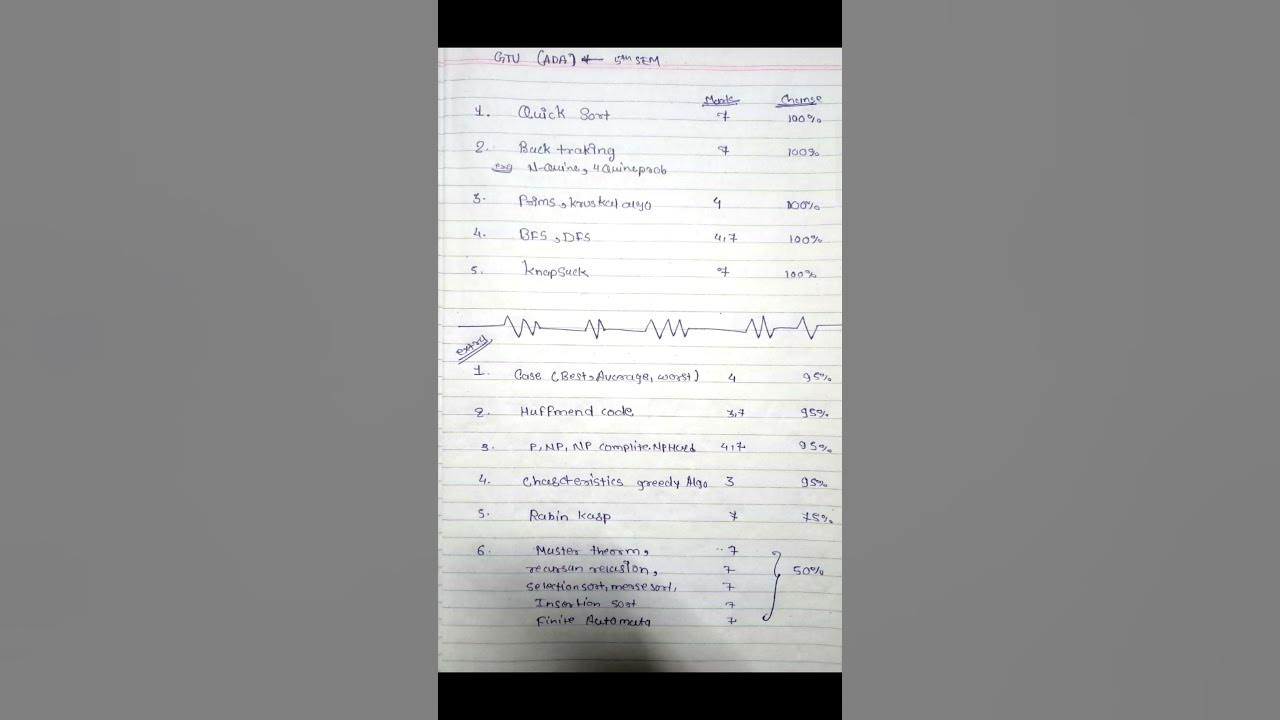 GTU (ADA) ← 5th SEM
Mark Chanse
1. Quick Sort 7 100%
2. Back traking 7 100%
exg N-Quine, 4 Quine prob
3. Prims, kruskal algo 4 100%
4. BFS, DFS 4,7 100%
5. Knapsack 7 100%
extra
1. Case (Best, Avcrage, worst) 4 95%
2. Huffmend code 3,7 95%
3. P, NP, NP complite, NP Hard 4,7 95%
4. Charcteristics greedy Algo 3 95%
5. Rabin karp 7 75%
6. Master theorm, 7
recursan relasion, 7 50%
selection sort, merse sort, 7
Insertion sort 7
Finite Automata 7